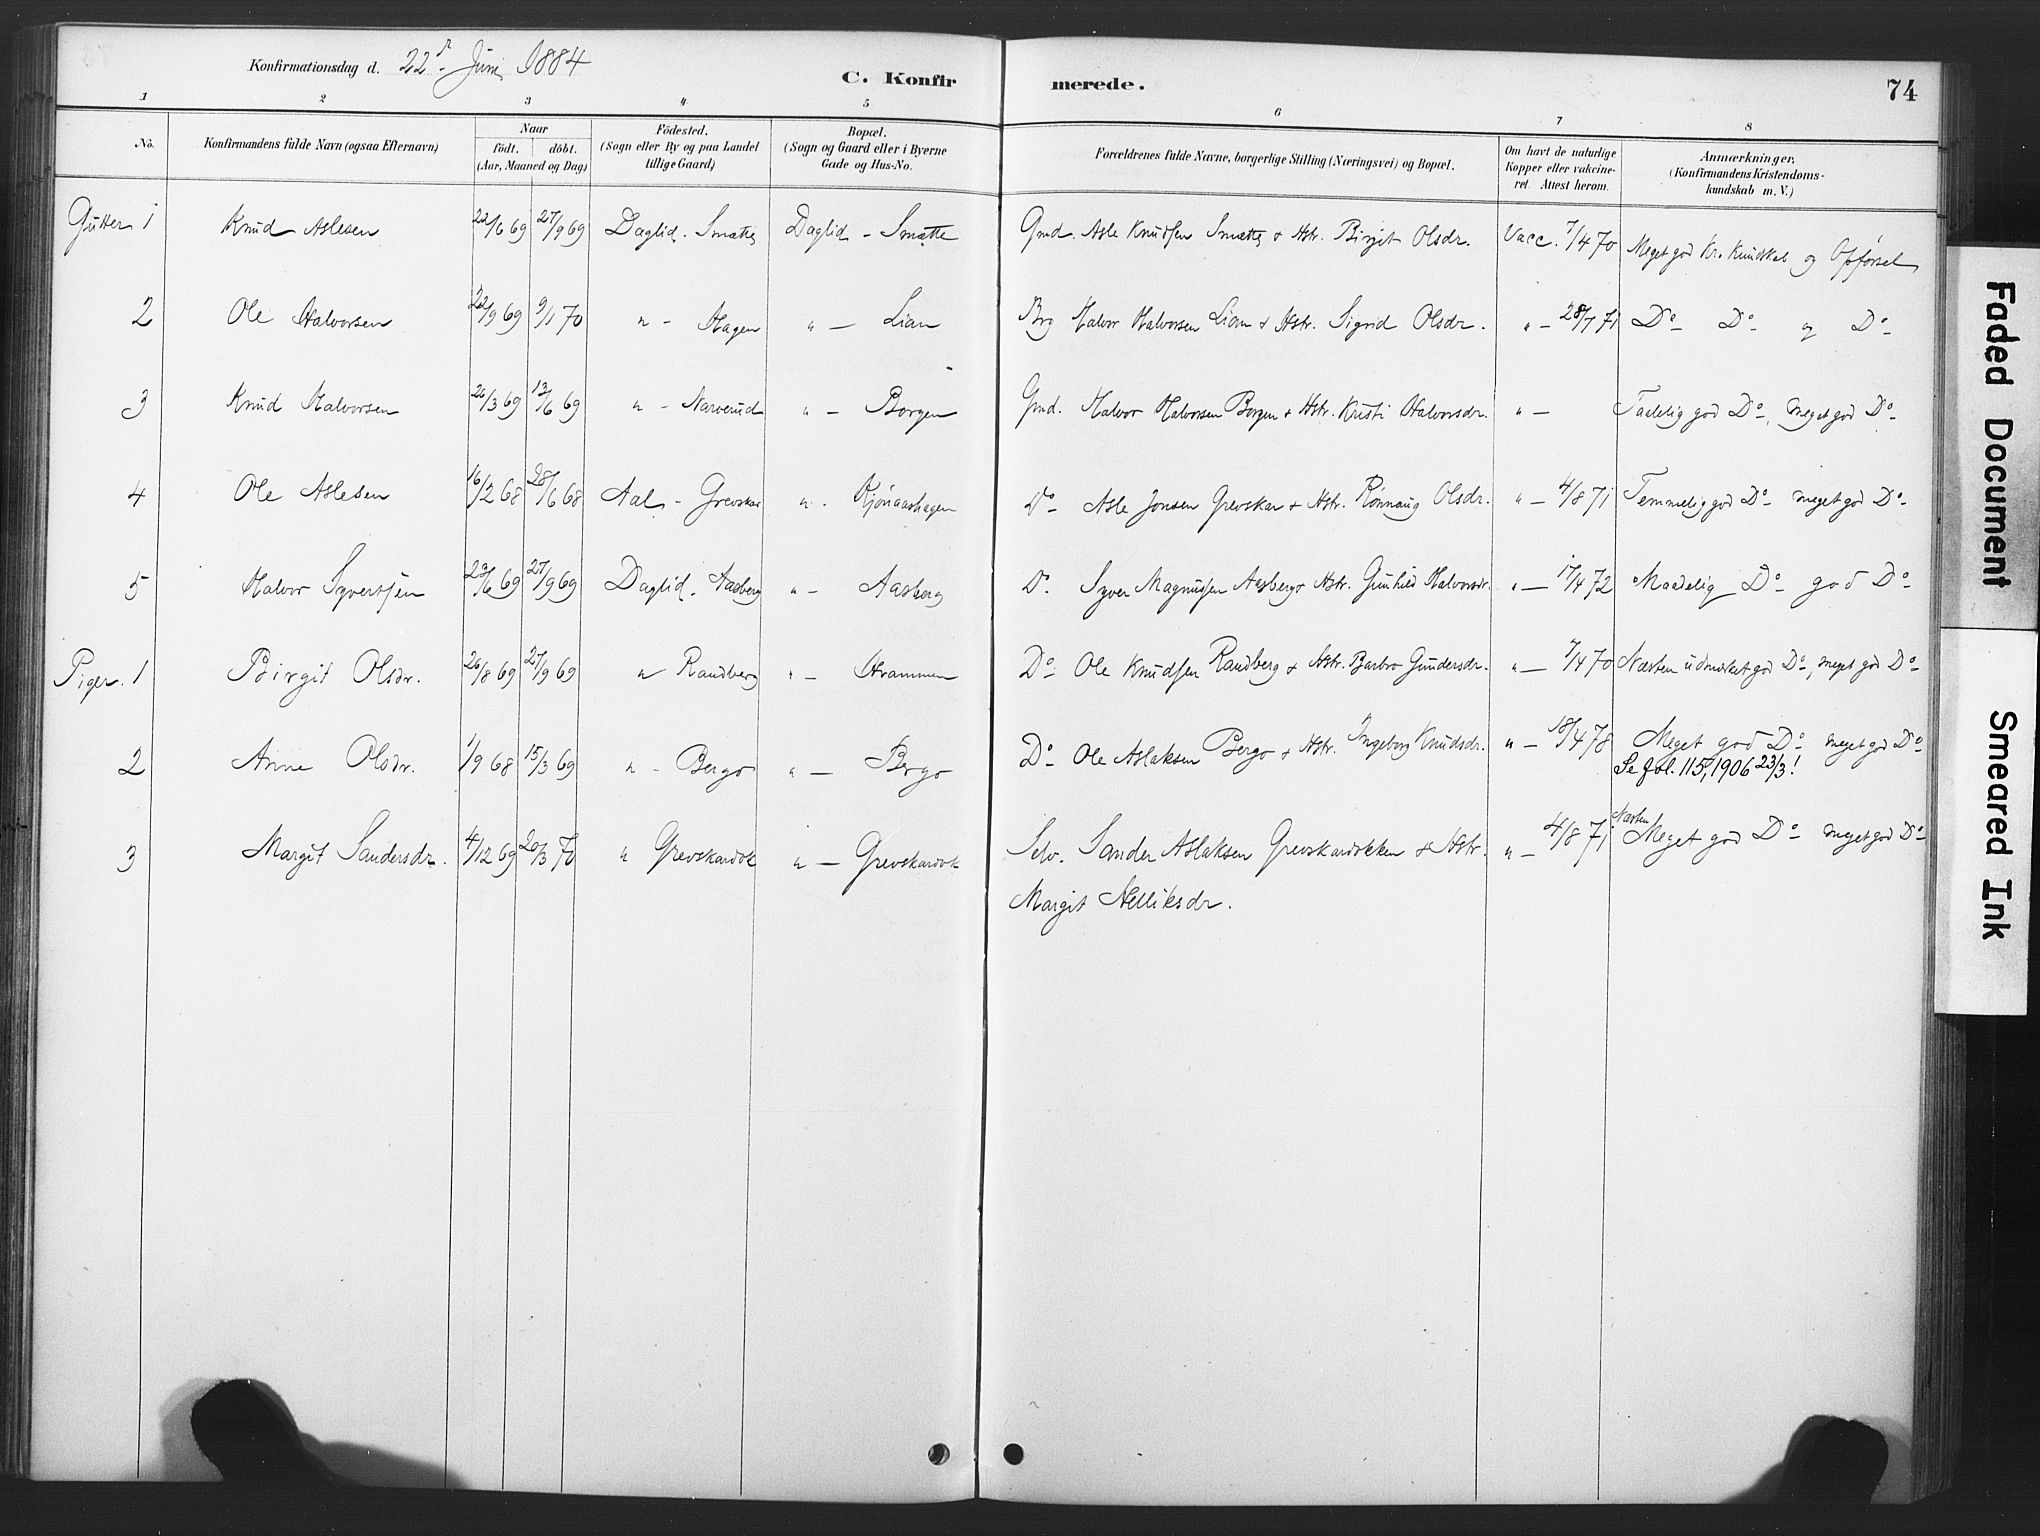 Konfirmationsdag d. 22d Juni 1884
C. Konfirmerede.
74
1 2 3 4 5 6 7 8
No.
Konfirmandens fulde Navn (ogsaa Efternavn)
Naar
födt. döbt.
(Aar, Maaned og Dag)
Födested.
(Sogn eller By og paa Landet
tillige Gaard)
Bopæl.
(Sogn og Gaard eller i Byerne
Gade og Hus-No.
Forældrenes fulde Navne, borgerlige Stilling (Næringsvei) og Bopæl.
Om havt de naturlige
Kopper eller vakcine-
ret. Attest herom.
Anmærkninger.
(Konfirmandens Kristendoms-
kundskab m. V.)
Gutter 1 Knud Aslesen 22/6 69 27/9 69 Daglid. Smætte Daglid - Smætte Gmd. Asle Knudsen Smætte & Hstr. Birgit Olsdr. Vacc. 7/4 70 Meget god Kr. Kundskab og Opførsel
2 Ole Halvorsen 22/9 69 9/1 70 " - Hagen " - Lian Brg Halvor Halvorsen Lian & Hstr. Sigrid Olsdr. " - 28/7 71 Do Do og Do
3 Knud Halvorsen 26/3 69 13/6 69 " - Narverud " - Borgen Gmd. Halvor Halvorsen Borgen & Hstr. Kristi Halvorsdr. " - Taalelig god Do, meget god Do
4 Ole Aslesen 16/2 68 28/6 68 Aal - Grevskar " - Kjønaashagen Do Asle Jonsen Grevskar & Hstr. Rønnaug Olsdr. " - 4/8 71 Temmelig god Do meget god Do
5 Halvor Syvertsen 23/6 69 27/9 69 Daglid. Aasberg " - Aasberg Do Syver Magnussen Aasberg & Hstr. Gunhild Halvorsdr. " - 17/4 72 Maadelig Do god Do
Piger. 1 Birgit Olsdr. 26/8 69 27/9 69 " Randberg " - Strammen Do Ole Knudsen Randberg & Hstr. Barbro Gundersdr. " - 7/4 70 Næsten udmærket god Do, meget god Do
2 Anne Olsdr. 1/9 68 15/3 69 " - Bergo " - Bergo Do Ole Aslaksen Bergo & Hstr. Ingeborg Knudsdr. " - 18/4 78 Meget god Do meget god Do
Se fol. 115, 1906 23/3!
3 Margit Sandersdr. 4/12 69 20/3 70 " Grevskardok " - Grevskardok Selv. Sander Aslaksen Grevskardokken & Hstr. " - 4/8 71 Næsten Meget god Do meget god Do
Margit Nelliksdr.
Faded Document
Smeared Ink